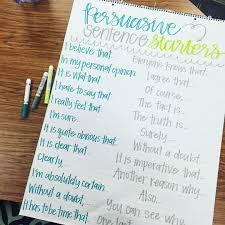 Persuasive
Sentence Starters
I believe that...
In my personal opinion...
It is vital that...
I have to say that...
I really feel that...
I'm sure...
It is quite obvious that...
It is clear that...
Clearly...
I'm absolutely certain...
Without a doubt...
It has to be time that...
Everyone knows that...
I agree that...
Of course...
The fact is...
The truth is...
Surely...
Without a doubt...
It is imperative that...
Another reason why...
Also...
You can see why